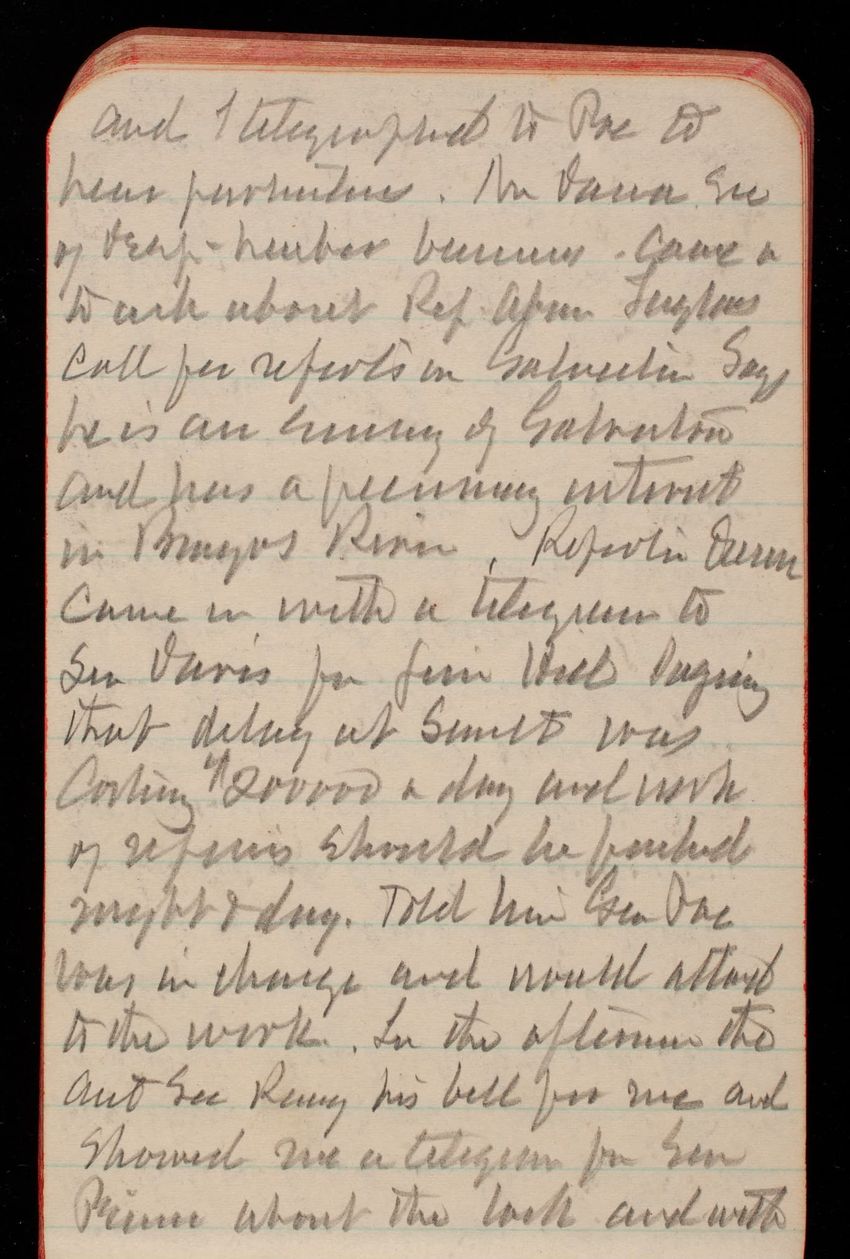 and I telegraphed to Poe to
hear particulars. Mr Dana Sec
of deep-harbor business. Came
to ask about Rep
Call for reports on Galveston Says
he is an enemy of Galveston
and has a pecuniary interest
in Brazos River, Reporter
Came in with a telegram to
Sen Davis for Jim Hill saying
that delay at Sault was
Costing $200000 a day and work
of repairs should be pushed
night & day. Told him Gen Poe
was in charge and would attend
to the work. In the afternoon the
Asst Sec Rang his bell for me and
Showed me a telegram for Sen
about the lock and with